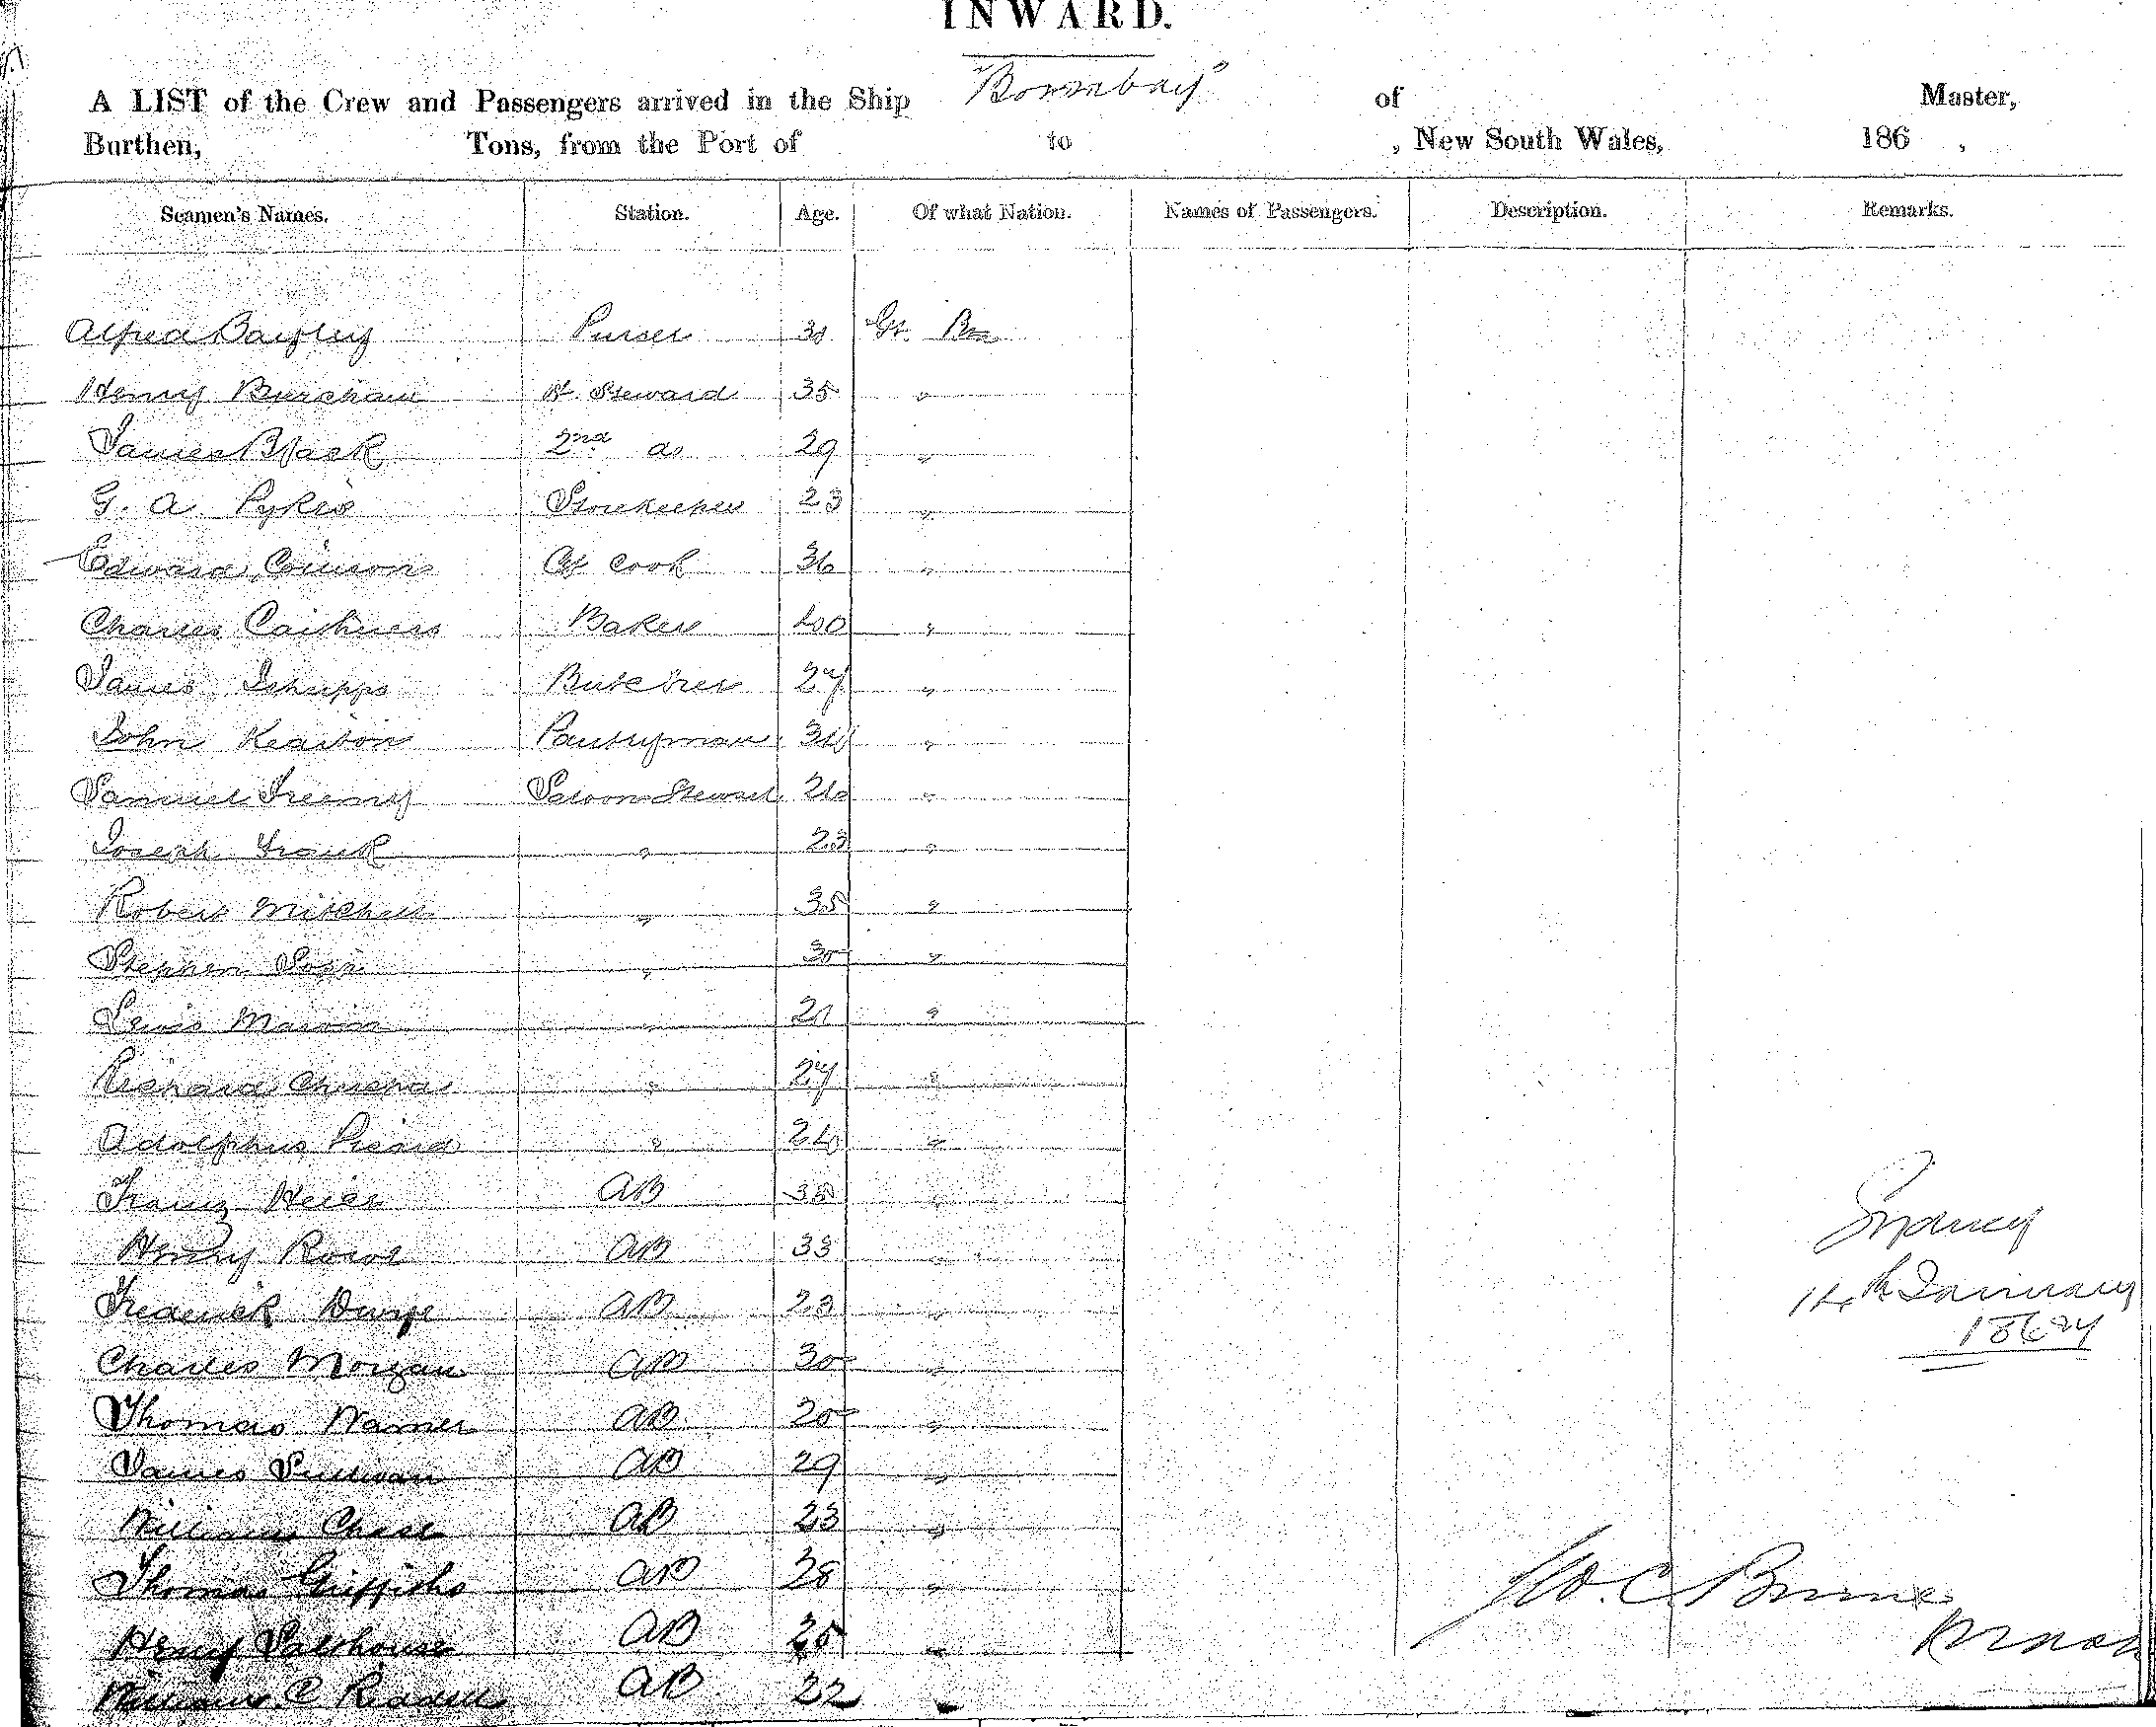 INWARD.
A LIST of the Crew and Passengers arrived in the Ship "Bombay" of Master,
Burthen, Tons, from the Port of to , New South Wales, 186 ,
Seamen's Names. Station. Age. Of what Nation. Names of Passengers. Description. Remarks.
Alfred Bayley Purser Gt. Bn
Henry Burcham H. Steward 35 "
James Black 2nd do 29 "
G. A. Storekeeper 23 "
Edward Cook 36 "
Charles Caithness Baker 40 "
James Butcher 27 "
John Kearton Pantryman 34 "
Samuel Saloon Steward "
Joseph Frank " 23 "
Robert Mitchell " 35 "
Stephen " 30 "
Lewis " 21 "
Richard Church " 27 "
Adolphus " 24 "
Franz AB "
Henry Rowe AB 33 "
Sydney
Frederick AB 23 "
14th January
1867
Charles Morgan AB 30 "
Thomas Warner AB 20 "
James Sullivan AB 29 "
William Chase AB 23 "
Thomas Griffiths AB 28 "
Henry Salthouse AB 25 "
William C AB 22 "